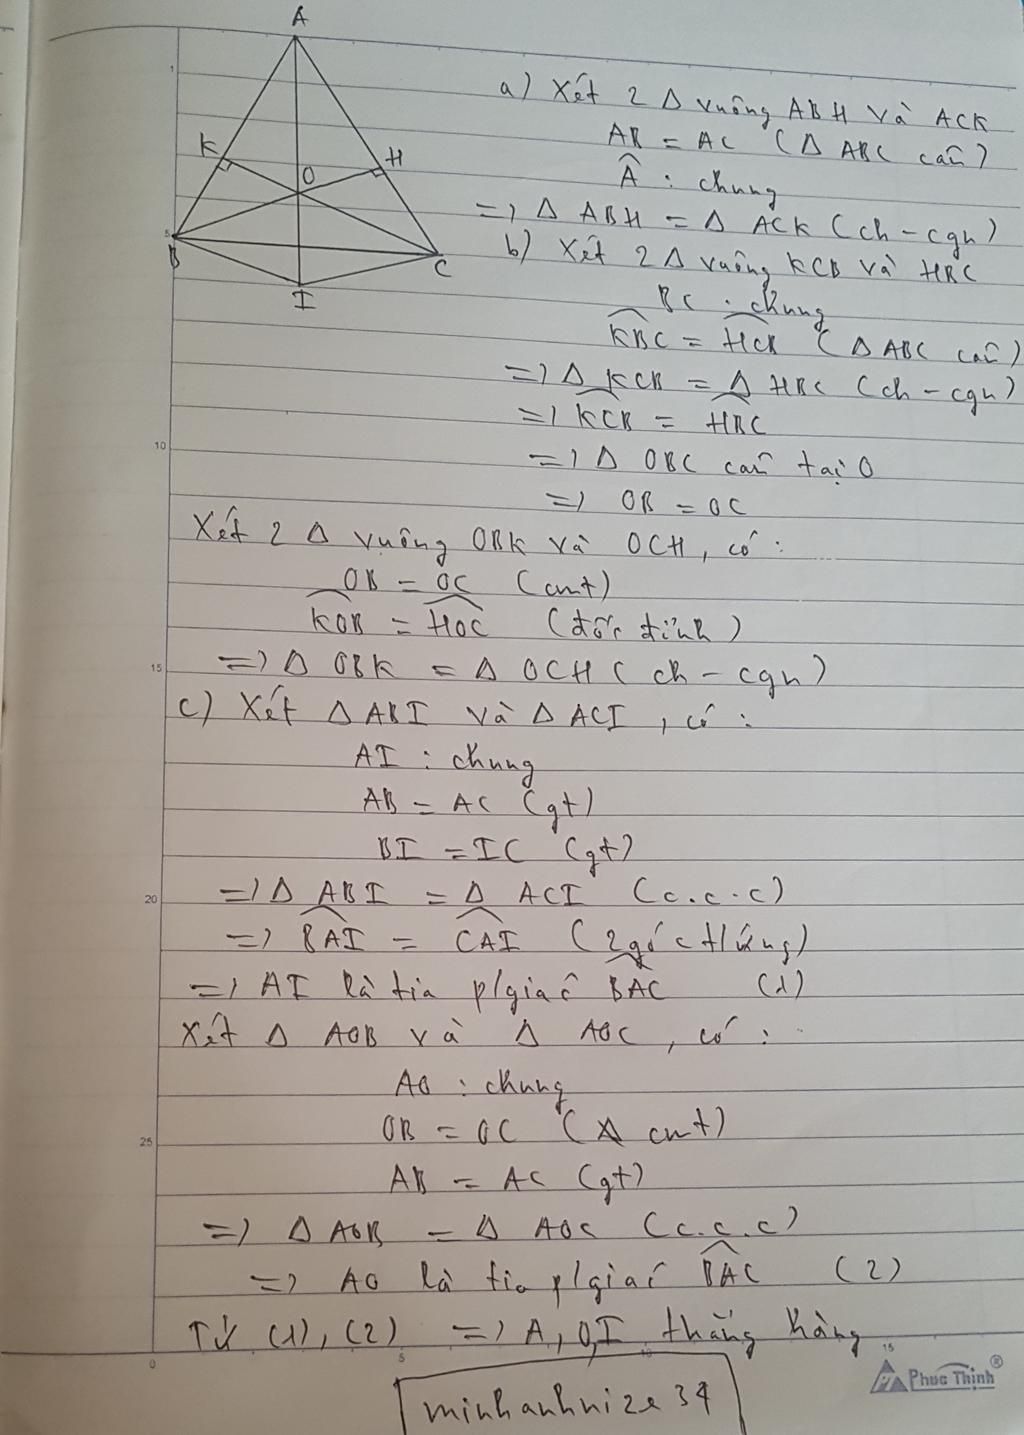 A
K
H
O
B
C
I
a) Xét 2 Δ vuông ABH và ACK
AB = AC (Δ ABC cân)
Â : chung
=> Δ ABH = Δ ACK (ch - cgn)
b) Xét 2 Δ vuông KCB và HBC
BC : chung
KBC = HCB (Δ ABC cân)
=> Δ KCB = Δ HBC (ch - cgn)
=> KCB = HBC
=> Δ OBC cân tại O
=> OB = OC
Xét 2 Δ vuông OBK và OCH, có :
OB = OC (cmt)
KOB = HOC (đối đỉnh)
=> Δ OBK = Δ OCH (ch - cgn)
c) Xét Δ ABI và Δ ACI, có :
AI : chung
AB = AC (gt)
BI = IC (gt)
=> Δ ABI = Δ ACI (c.c.c)
=> BAI = CAI (2 góc t/ứng)
=> AI là tia p/giác BAC (1)
Xét Δ AOB và Δ AOC, có :
AO : chung
OB = OC (cmt)
AB = AC (gt)
=> Δ AOB = Δ AOC (c.c.c)
=> AO là tia p/giác BAC (2)
Từ (1), (2) => A, O, I thẳng hàng
minhanhnize34
1
5
10
15
20
25
0 5 10 15
Phuc Thinh®